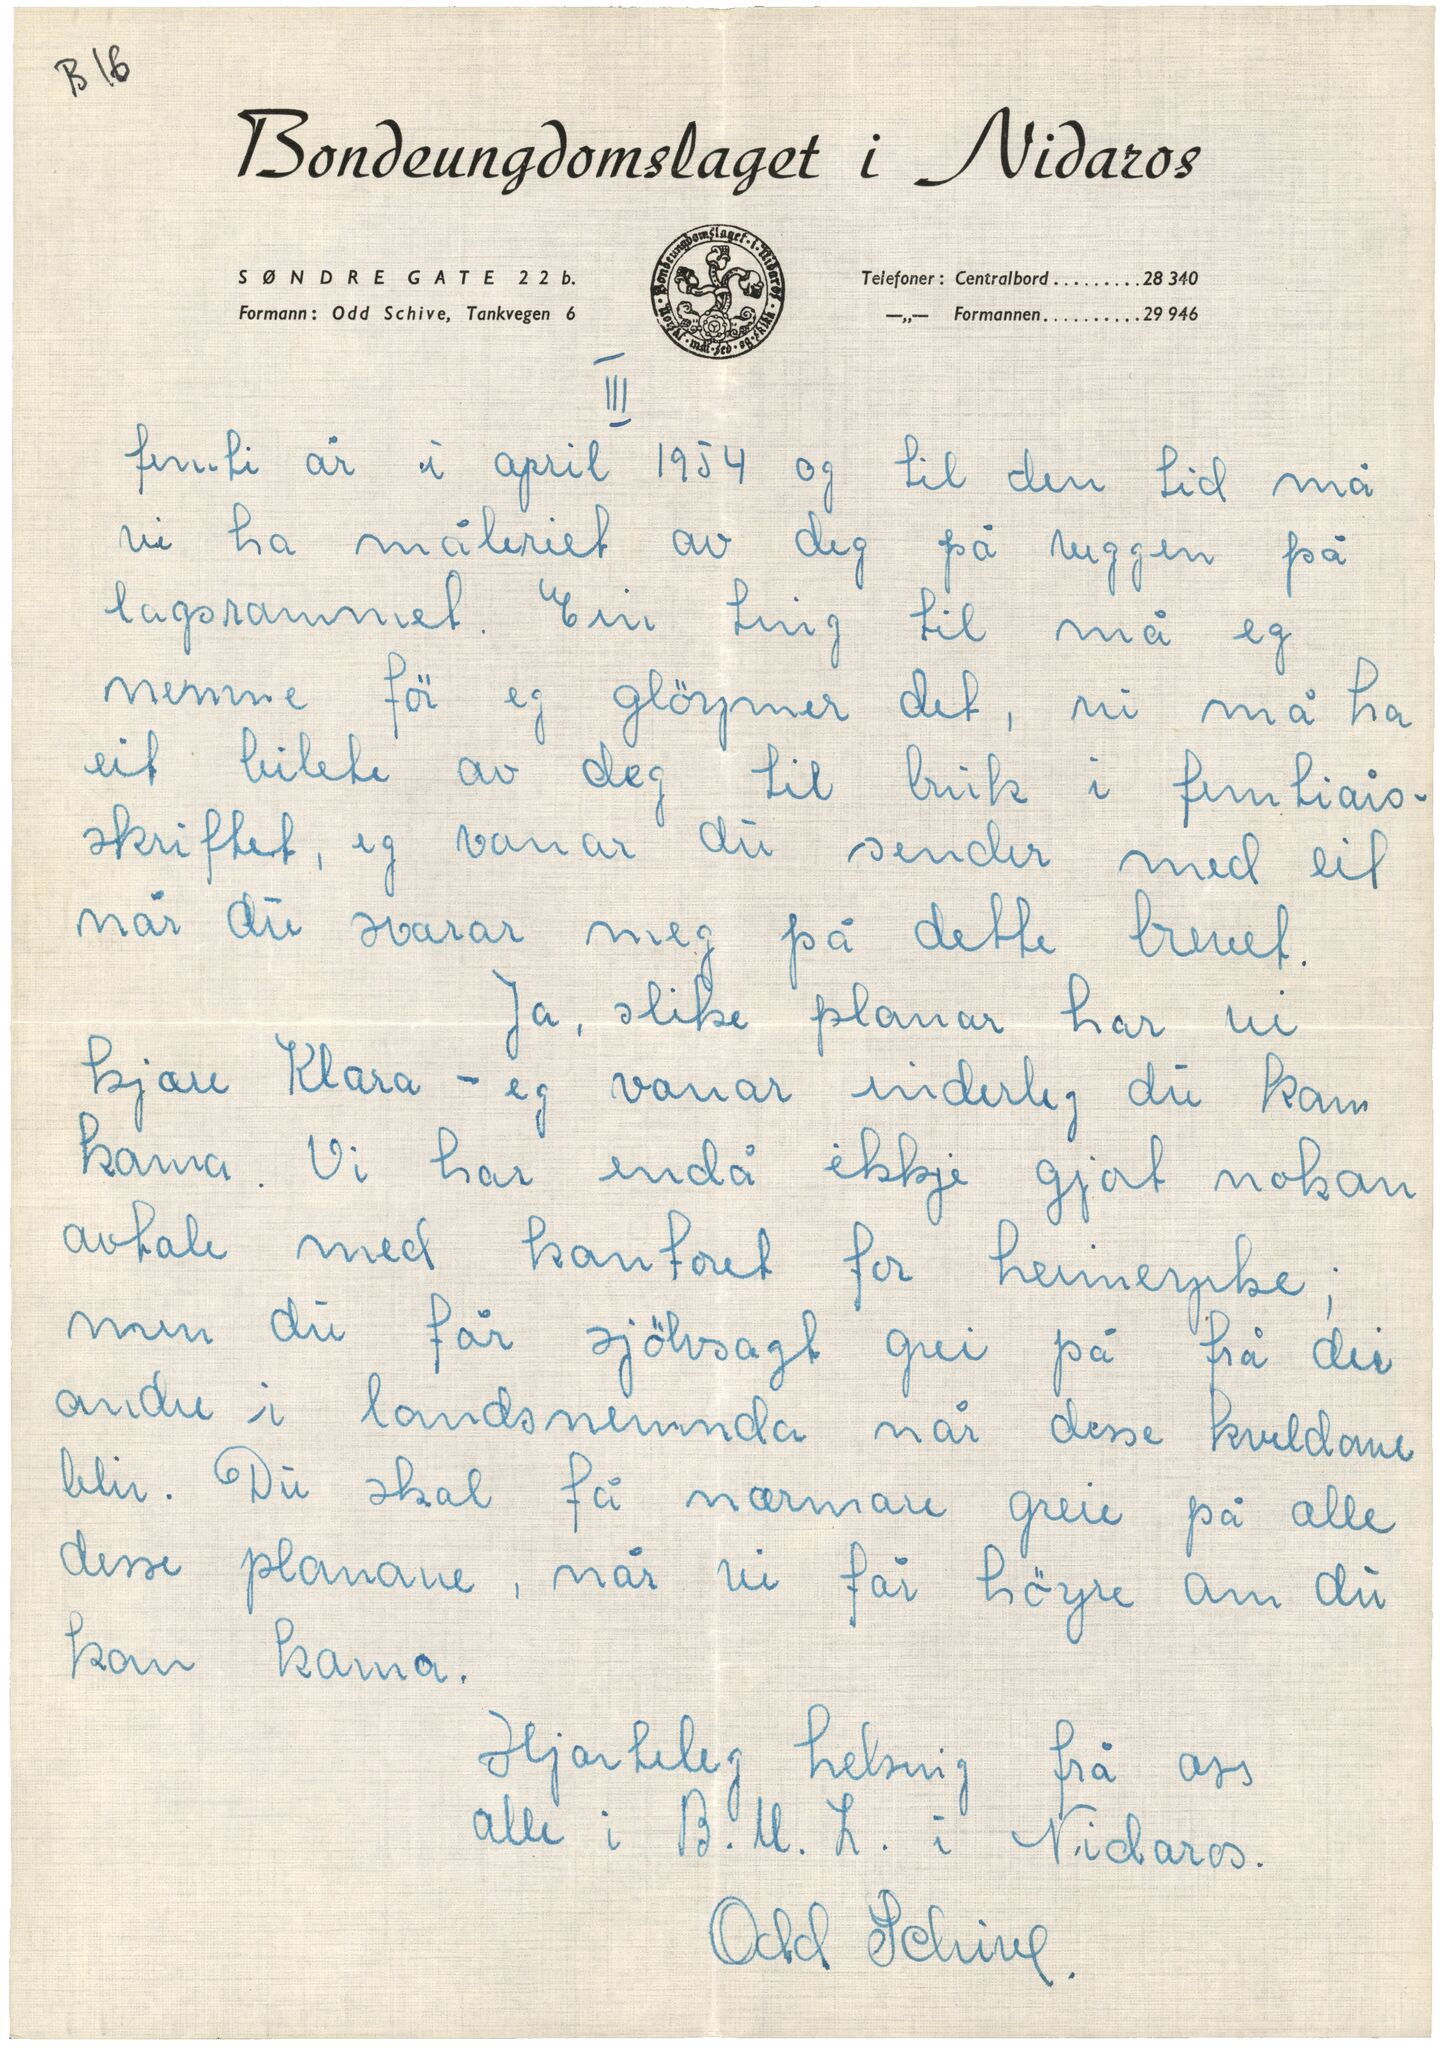 B 16
Bondeungdomslaget i Nidaros
SØNDRE GATE 22 b.
Formann: Odd Schive, Tankvegen 6
Bondeungdomslaget · i · Nidaros · Norsk · mål · sed · og · skikk ·
Telefoner: Centralbord.........28 340
—„— Formannen..........29 946
III
femti år i april 1954 og til den tid må
vi ha måleriet av deg på veggen på
lagsrommet. Ein ting til må eg
nemne för eg glöymer det, vi må ha
eit bilete av deg til bruk i femtiårs-
skriftet, eg vonar du sender med eit
når du svarar meg på dette brevet.
Ja, slike planar har vi
kjære Klara – eg vonar inderleg du kan
koma. Vi har endå ikkje gjort nokon
avtale med kontoret for heimeyrke;
men du får sjölvsagt grei på frå dei
andre i landsnemnda når desse kveldane
blir. Du skal få nærmare greie på alle
desse planane, når vi får höyre om du
kan koma.
Hjarteleg helsing frå oss
alle i B.U.L. i Nidaros.
Odd Schive.